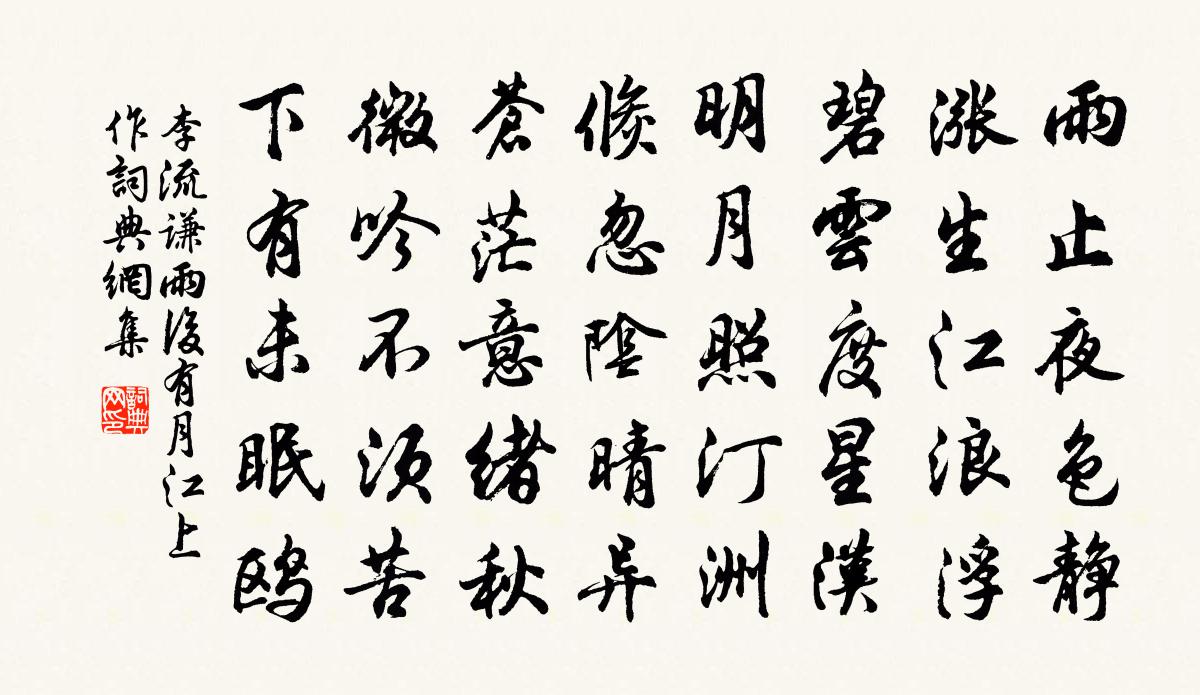 雨止夜色静
漲生江浪浮
碧雲度星漢
明月照汀洲
倏忽陰晴异
蒼茫意緒秋
微吟不須苦
下有未眠鸥
李流谦雨後有月江上
作詞典網集
詞典
网印